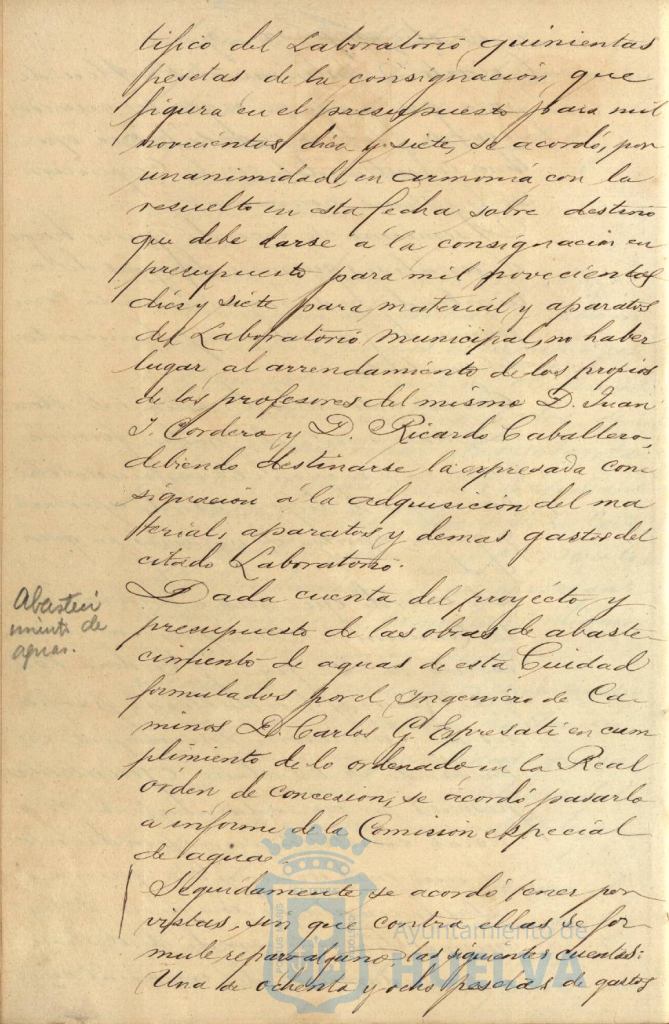 tífico del Laboratorio quinientas
pesetas de la consignación que
figura en el presupuesto para mil
novecientos diez y siete, se acordó, por
unanimidad, en armonía con lo
resuelto en esta fecha sobre destino
que debe darse á la consignación en
presupuesto para mil novecientos
diez y siete para material y aparatos
del Laboratorio municipal, no haber
lugar al arrendamiento de los propios
de los profesores del mismo D. Juan
J. Cordero y D. Ricardo Caballero,
debiendo destinarse la expresada con
signación á la adquisición del ma
terial, aparatos y demas gastos del
citado Laboratorio.
Abasteci
miento de
aguas.
Dada cuenta del proyécto y
presupuesto de las obras de abaste-
cimiento de aguas de esta Ciudad
formulados por el Ingeniero de Ca-
minos D. Carlos G. Espresati en cum
plimiento de lo ordenado en la Real
órden de concesion, se acordó pasarlo
á informe de la Comisión especial
de aguas.
Seguidamente se acordó tener por
vistas, sin que contra ellas se for
mule reparo alguno, las siguientes cuentas:
Una de ochenta y ocho pesetas de gastos
Ayuntamiento de
HUELVA